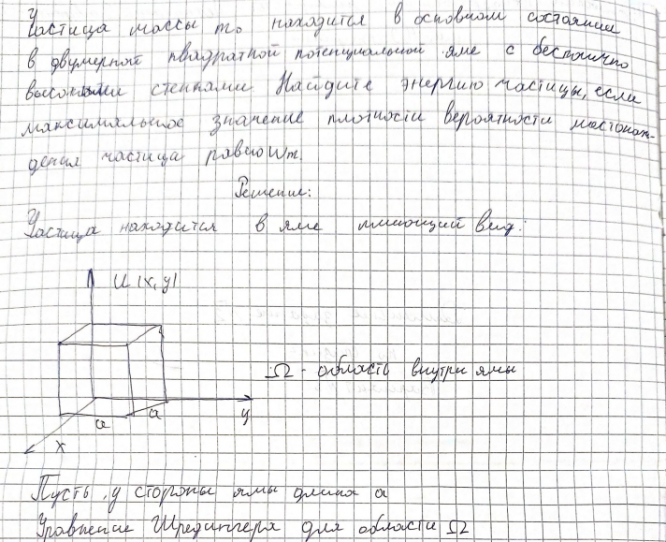 Частица массы m₀ находится в основном состоянии
в двумерной квадратной потенциальной яме с бесконечно
высокими стенками Найдите энергию частицы, если
максимальное значение плотности вероятности местонахож-
дения частица равно Wm.
Решение:
Частица находится в яме имеющий вид:
U(x,y)
Ω - область внутри ямы
a a y
x
Пусть у стороны ямы длина a
Уравнение Шредингера для области Ω